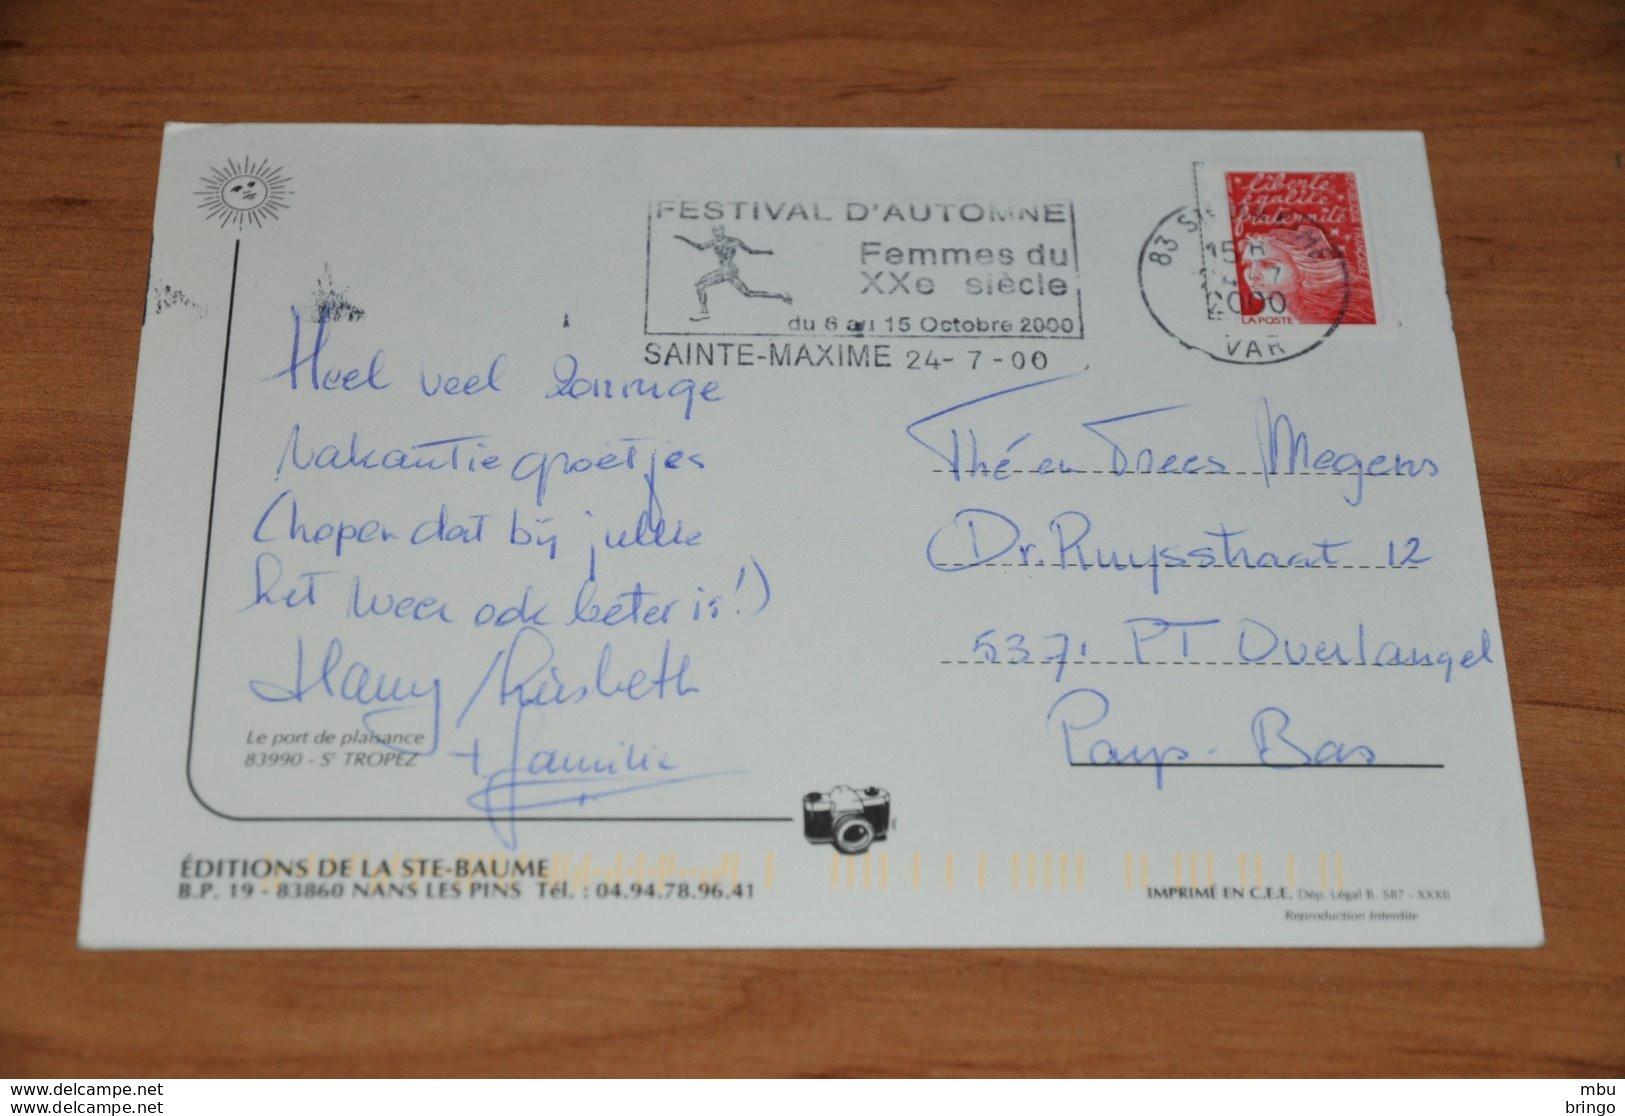 FESTIVAL D'AUTOMNE
Femmes du
XXe siècle
du 6 au 15 Octobre 2000
SAINTE-MAXIME 24-7-00
liberté
égalité
fraternité
LA POSTE
83
2000
VAR
Heel veel zonnige
vakantiegroetjes
(hopen dat bij jullie
het weer ook beter is!)
Harry / Liesbeth
+ familie
Thé en Trees Megens
Dr. Ruysstraat 12
5371 PT Overlangel
Pays-Bas
Le port de plaisance
83990 - St TROPEZ
ÉDITIONS DE LA STE-BAUME
B.P. 19 - 83860 NANS LES PINS Tél. : 04.94.78.96.41
IMPRIMÉ EN C.E.E. Dép. Légal B. 587 - XXXII
Reproduction Interdite
delcampe.net
delcampe.net
mbu
bringo